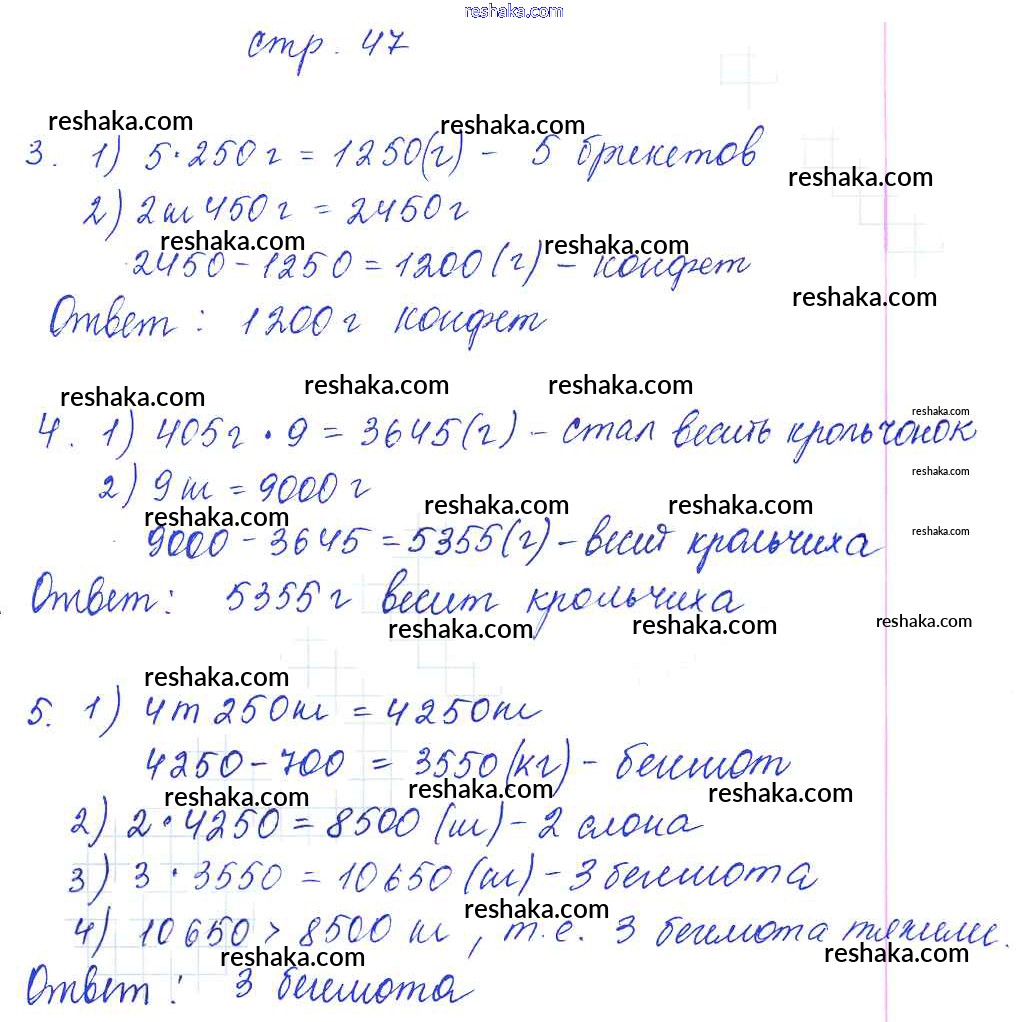 reshaka.com
стр. 47
reshaka.com reshaka.com
3. 1) 5·250г = 1250(г) - 5 брикетов
reshaka.com
2) 2кг 450г = 2450г
reshaka.com reshaka.com
2450 - 1250 = 1200 (г) - конфет
reshaka.com
Ответ: 1200г конфет
reshaka.com reshaka.com reshaka.com
reshaka.com
4. 1) 405г · 9 = 3645(г) - стал весить крольчонок
reshaka.com
2) 9кг = 9000г
reshaka.com reshaka.com reshaka.com
reshaka.com
9000 - 3645 = 5355(г) - весит крольчиха
Ответ: 5355г весит крольчиха
reshaka.com reshaka.com reshaka.com
reshaka.com
5. 1) 4т 250кг = 4250кг
4250 - 700 = 3550(кг) - бегемот
reshaka.com reshaka.com reshaka.com
2) 2·4250 = 8500 (кг) - 2 слона
3) 3·3550 = 10650 (кг) - 3 бегемота
reshaka.com
4) 10650 > 8500 кг, т.е. 3 бегемота тяжелее.
reshaka.com reshaka.com
Ответ: 3 бегемота